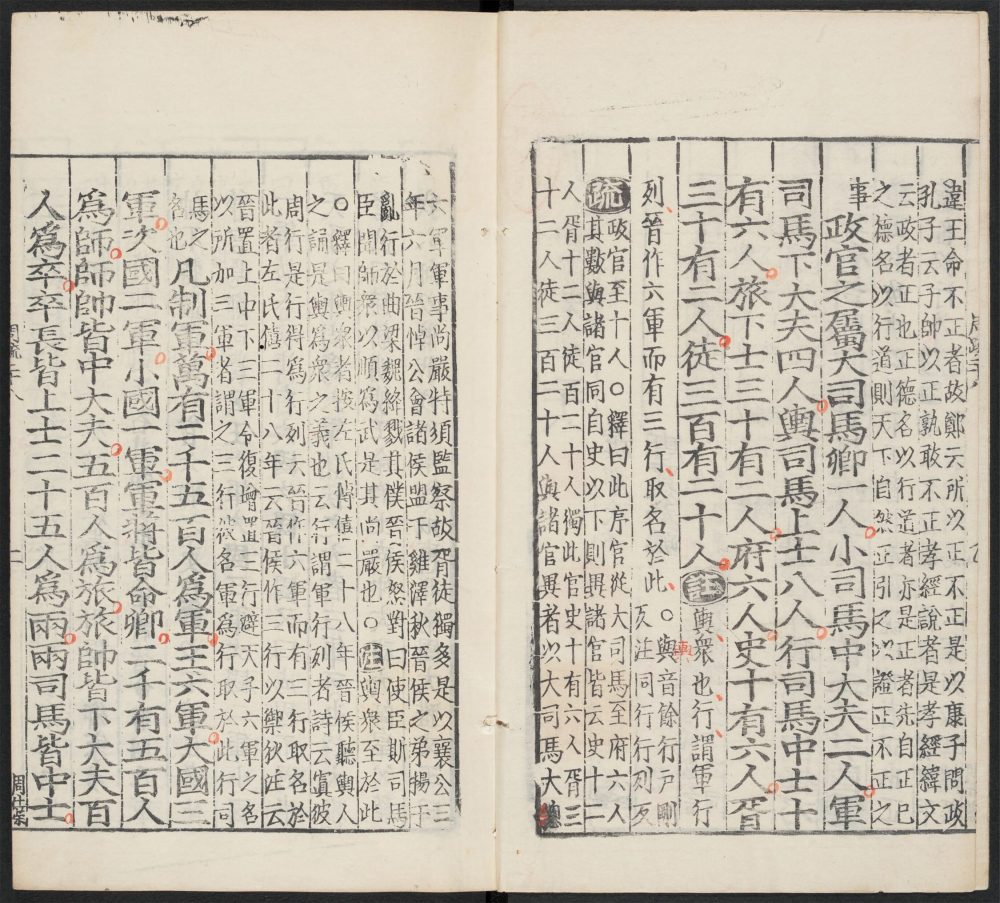 違王命不正者故鄭云所以正不正是以康子問政
孔子云子帥以正孰敢不正孝經說者是孝經緯文
云政者正也正德名以行道者亦是正者先自正已
之德名以行道則天下自然正引之以證正不正之
事
政官之屬大司馬卿一人小司馬中大夫二人軍
司馬下大夫四人輿司馬上士八人行司馬中士十
有六人旅下士三十有二人府六人史十有六人胥
三十有二人徒三百有二十人注輿衆也行謂軍行
列晉作六軍而有三行取名於此
輿
○輿音餘行戶剛
反注同行行列反
疏政官至十人○釋曰此序官從大司馬至府六人
其數與諸官同自史以下則異諸官皆云史十二
人胥十二人徒百二十人獨此官史十有六人胥三
十二人徒三百二十人與諸官異者以大司馬大總
六軍軍事尚嚴特須監察故胥徒獨多是以襄公三
年六月晉悼公會諸侯盟于雞澤秋晉侯之弟揚干
亂行於曲梁魏絳戮其僕晉侯怒對曰使臣斯司馬
臣聞師衆以順爲武是其尚嚴也○注輿衆至於此
○釋曰輿衆者按左氏傳僖二十八年晉侯聽輿人
之誦是輿爲衆之義也云行謂軍行列者詩云寘彼
周行是行得爲行列云晉作六軍而有三行取名於
此者左氏僖二十八年云晉侯作三行以禦狄注云
晉置上中下三軍今復增置三行避天子六軍之名
以所加三軍者謂之三行彼名軍爲行取於此行司
馬之
名也
凡制軍萬有二千五百人爲軍王六軍大國三
軍次國二軍小國一軍軍將皆命卿二千有五百人
爲師師帥皆中大夫五百人爲旅旅帥皆下大夫百
人爲卒卒長皆上士二十五人爲兩兩司馬皆中士